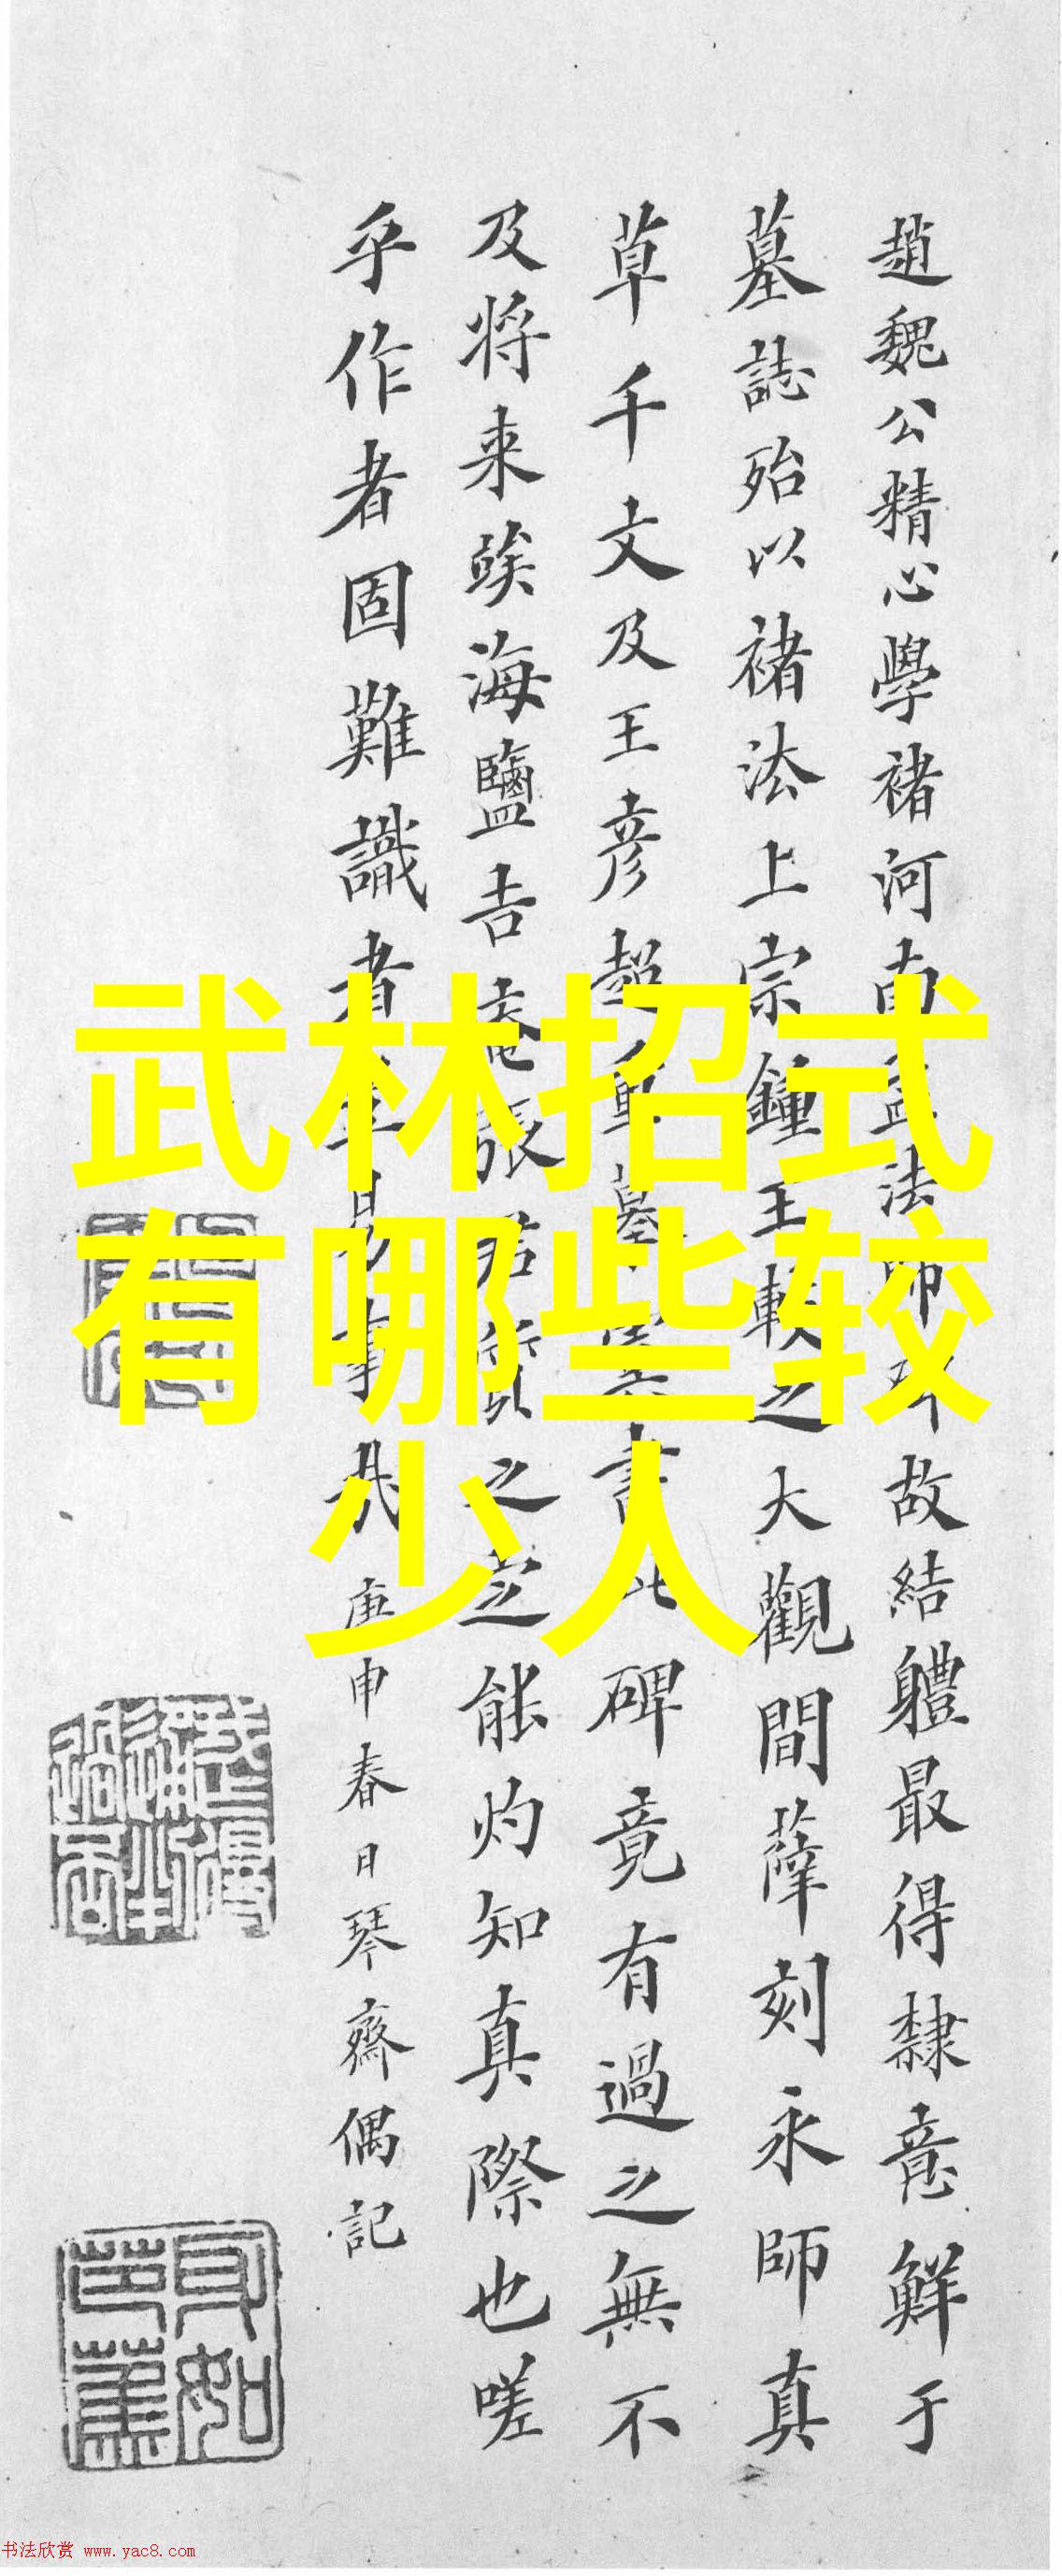 趙魏公精心學褚河南孟法師碑故結軆最得隸意鮮于
墓誌殆以褚法上宗鍾王較之大觀間薛刻永師真
草千文及王彦超重墓書此碑竟有過之無不
及将来俟海鹽吉菴張君質之定能灼知真際也嗟
乎作者固難識者易事哉庚申春日琴齋偶記
武林招式
有哪些较
少人
书法欣赏 www.yac8.com